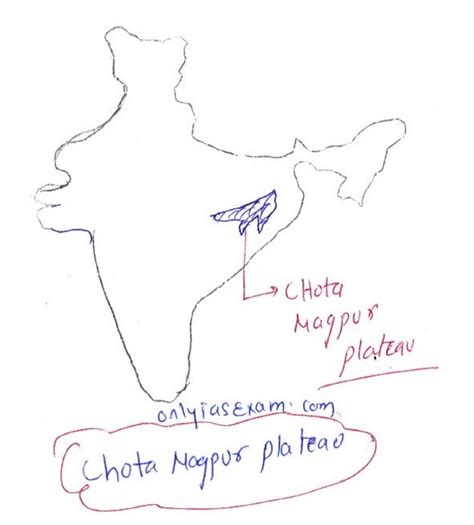 CHota
Magpur
plateau
onlyiasExam.com
Chota Magpur plateau